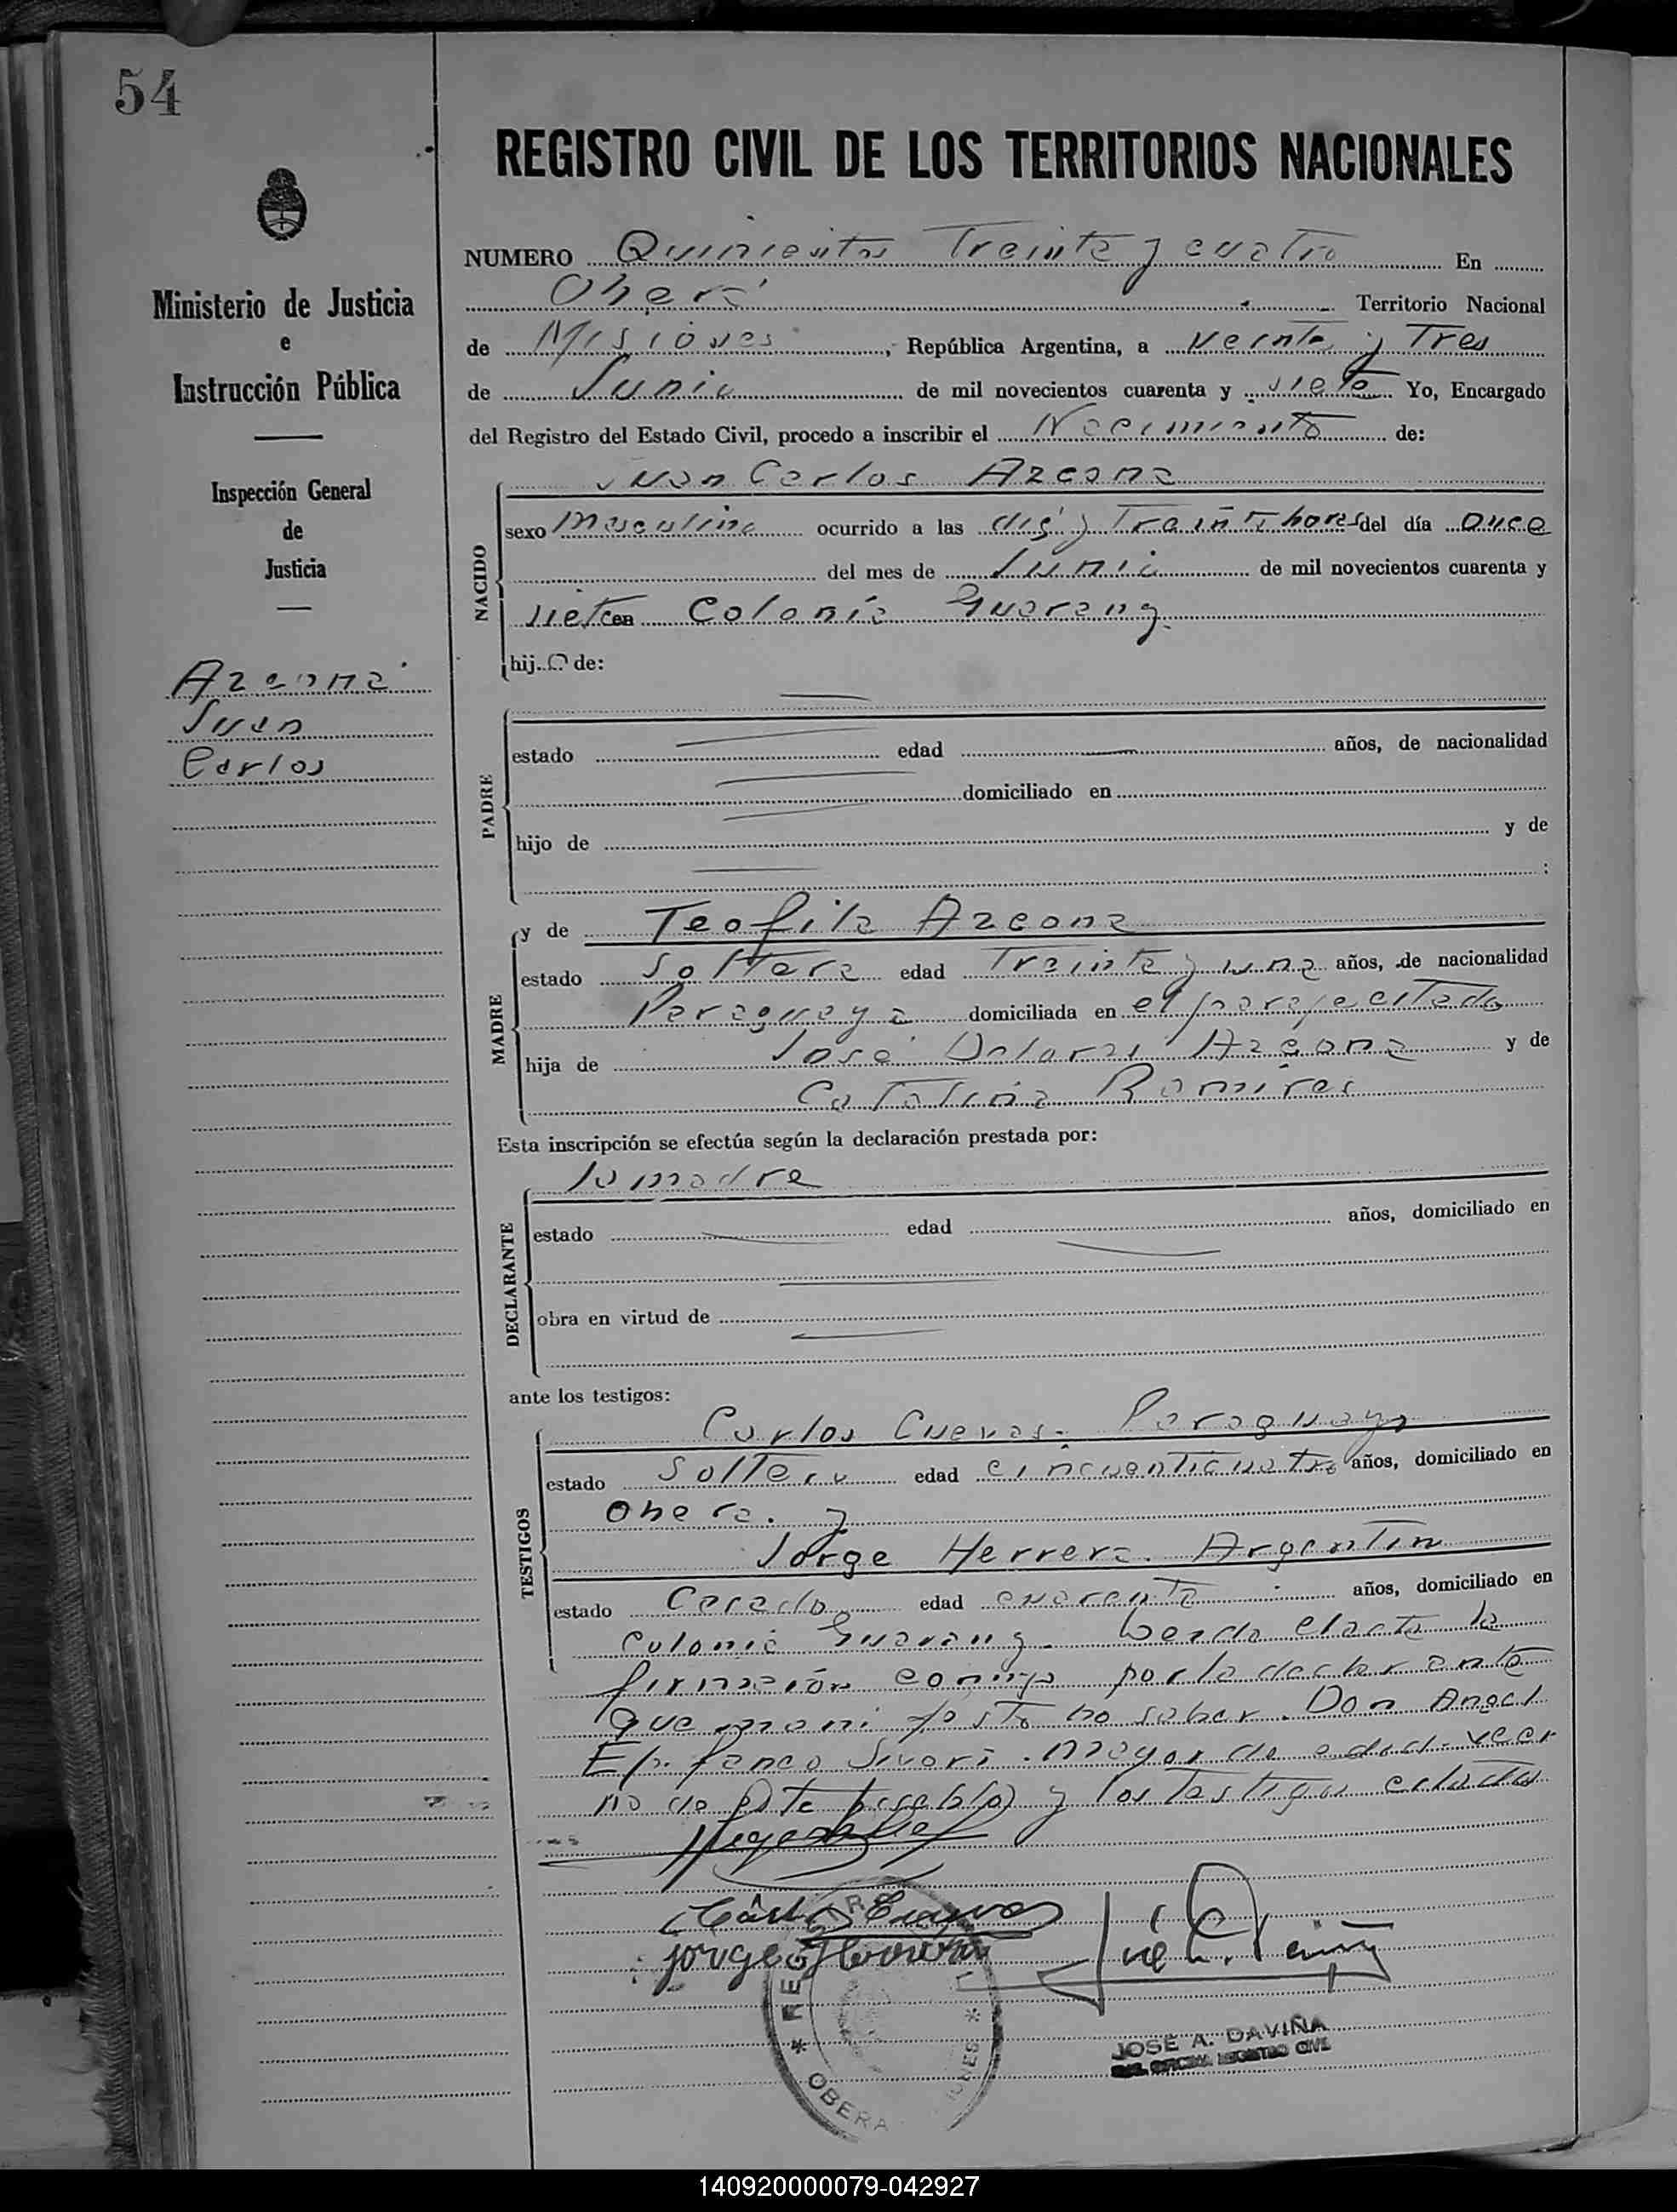 54
REGISTRO CIVIL DE LOS TERRITORIOS NACIONALES
Ministerio de Justicia
e
Instrucción Pública
Inspección General
de
Justicia
Azcona
Juan
Carlos
NUMERO Quinientos Treinta y cuatro En
Oberá Territorio Nacional
de Misiones, República Argentina, a veinte y Tres
de Junio de mil novecientos cuarenta y siete Yo, Encargado
del Registro del Estado Civil, procedo a inscribir el Nacimiento de:
NACIDO
Juan Carlos Azcona
sexo masculino ocurrido a las y Treinta horas del día once
del mes de Junio de mil novecientos cuarenta y
siete en Colonia Guarany.
hijo de:
PADRE
estado edad años, de nacionalidad
domiciliado en
hijo de y de
;
MADRE
y de Teofila Azcona
estado Soltera edad Treinta y una años, de nacionalidad
Paraguaya domiciliada en el paraje citado
hija de José Dolores Azcona y de
Catalina Ramires
Esta inscripción se efectúa según la declaración prestada por:
DECLARANTE
la madre
estado edad años, domiciliado en
obra en virtud de
ante los testigos:
TESTIGOS
Carlos Cuevas. Paraguayo
estado Soltero edad cincuenticuatro años, domiciliado en
Obera. y
Jorge Herrera. Argentino
estado Casado edad cuarenta años, domiciliado en
Colonia Guarany. Leida el acta la
firmarón conmigo por la declarante
que manifesto no saber. Don Angel
Sivori. mayor de edad. veci
no de este pueblo) y los testigos citados
Carlos Cuevas
Jorge Herrera
REGISTRO
OBERA
JOSÉ A. DAVIÑA
OFICINA REGISTRO CIVIL
140920000079-042927